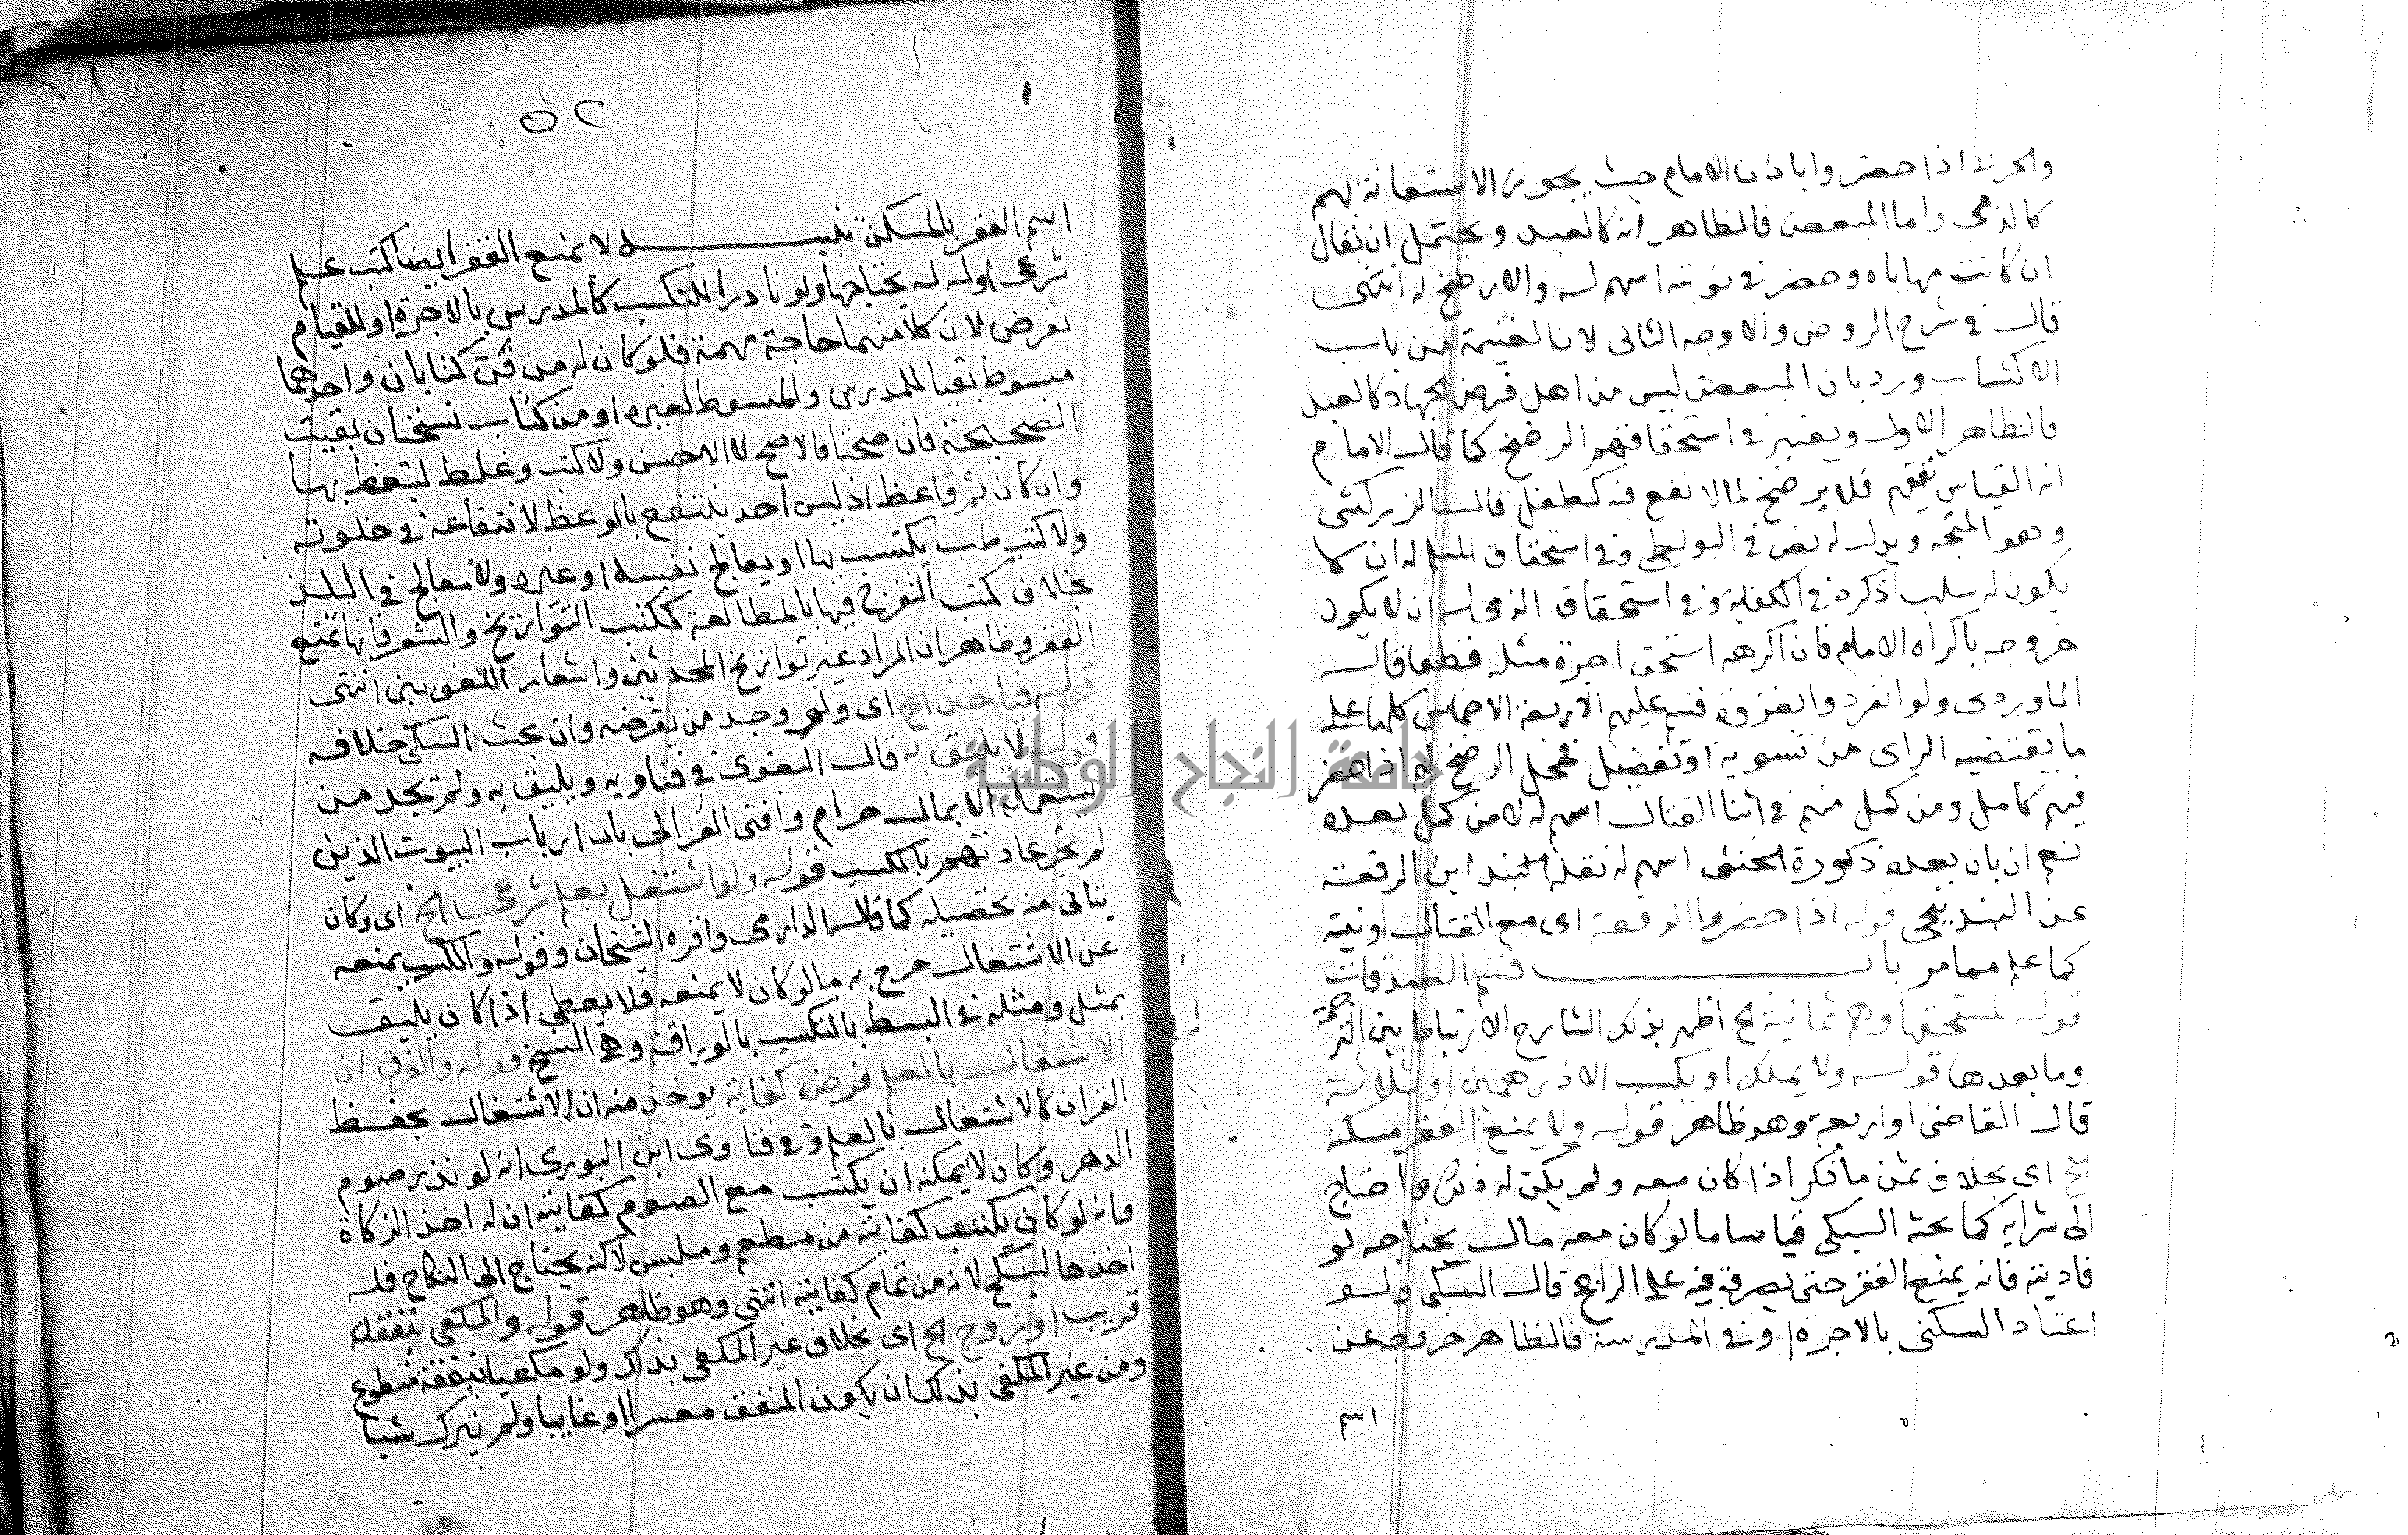 والحربي اذا حضروا باذن الامام حيث يجوز الاستعانة بهم
كالذمي واما المبعض فالظاهر انه كالعبد ويحتمل ان يقال
ان كانت مهاياه وحضر في نوبته اسهم له والا رضخ له انتهى
قال في شرح الروض والاوجه الثاني لان الغنيمة من باب
الاكتساب ورد بان المبعض ليس من اهل فرض الجهاد كالعبد
فالظاهر الاول ويعتبر في استحقاقهم الرضخ كما قال الامام
انه القياس نفعهم فلا يرضخ لما لا نفع فيه كطفل قال الزركشي
وهو المتجه ويدل له نص في البويطي وفي استحقاق المسلم ان لا
يكون له سلب ذكره في الكفاية وفي استحقاق الذمي ان لا يكون
خروجه باكراه الامام فان اكرهه استحق اجرة مثله قطعا قاله
الماوردي ولو انفردوا بغزوة قسم عليهم الاربعة الاخماس كلها على
ما يقتضيه الراى من تسوية او تفضيل فمحل الرضخ اذا حضر
فيهم كامل ومن كمل منهم في اثنا القتال اسهم له لا من كمل بعده
نعم ان بان بعده ذكورة الخنثى اسهم له نقله ابن الرفعة
عن البندنيجي قوله اذا حضروا الوقعة اى مع القتال او نيته
كما علم ممامر باب قسم الصدقات
قوله لمستحقها وهم ثمانية الخ اظهر بذلك الشارح الارتباط بين الترجمة
وما بعدها قوله ولا يملك او يكتسب الا درهمين او ثلاثة
قال القاضي او اربعة وهو ظاهر قوله ولا يمنع الفقر مسكنه
الخ اى بخلاف ثمن ما ذكر اذا كان معه ولم يكن له ذلك واحتاج
الى شرايه كما بحثه السبكي قياسا مالو كان معه مال يحتاجه لو
فادينه فانه يمنع الفقر حتى يصرفه فيه على الراجح قال السبكي ولو
اعتاد السكنى بالاجرة او في المدرسة فالظاهر خروجه عن
اسم
٥٢
اسم الفقر بالمسكن تنبيه لا يمنع الفقر ايضا كتب علم
شرعي او له يحتاجها ولو نادرا للتكسب كالمدرس بالاجرة او للقيام
بفرض لان كلا منهما حاجة مهمة فلو كان له من فن كتابان واحدهما
مبسوط بقيا للمدرس والمبسوط لغيره او من كتاب نسختان بقيت
الصحيحة فان صحتا فالاصح لا الاحسن ولا كتب وعظ ليتعظ بها
وان كان ثم واعظ اذ ليس احد ينتفع بالوعظ لانتفاعه في خلوته
ولا كتب طب يكتسب بها او يعالج نفسه او غيره ولا معالج في البلد
بخلاف كتب التفرج فيها بالمطالعة ككتب التواريخ والشعر فانها تمنع
الفقر وظاهر ان المراد غير تواريخ المحدثين واشعار اللغويين انتهى
قوله فياخذ الخ اى ولو وجد من يقرضه وان بحث السبكي خلافه
قوله لا يليق به قال البغوي في فتاويه ويليق به ولم يجد من
يستعمله الا بمال حرام وافتى الغزالي بان ارباب البيوت الذين
لم تجر عادتهم بالكسب قوله ولو اشتغل بعلم شرعي الخ اى وكان
يتاتى منه تحصيله كما قاله الدارمي واقره الشيخان وقوله والكسب يمنعه
عن الاشتغال خرج به مالو كان لا يمنعه فلا يعطى اذا كان يليق
بمثل ومثله في البسط بالتكسب بالوراقة وهي النسخ قوله والفرق ان
الاشتغال بالعلم فرض كفاية يوخذ منه ان الاشتغال بحفظ
القران كالاشتغال بالعلم وفي فتاوى ابن البوري انه لو نذر صوم
الدهر وكان لا يمكنه ان يكتسب مع الصوم كفايته ان له اخذ الزكاة
وانه لو كان يكتسب كفايته من مطعم وملبس لاكنه يحتاج الى النكاح فله
اخذها لينكح لانه من تمام كفايته انتهى وهو ظاهر قوله والمكفي بنفقة
قريب او زوج الخ اى بخلاف غير المكفي بذلك ولو مكفيا بنفقة متطوع
ومن غير المكفي بذلك ان يكون المنفق معسرا او غايبا ولم يترك شيا
جامعة النجاح الوطنية